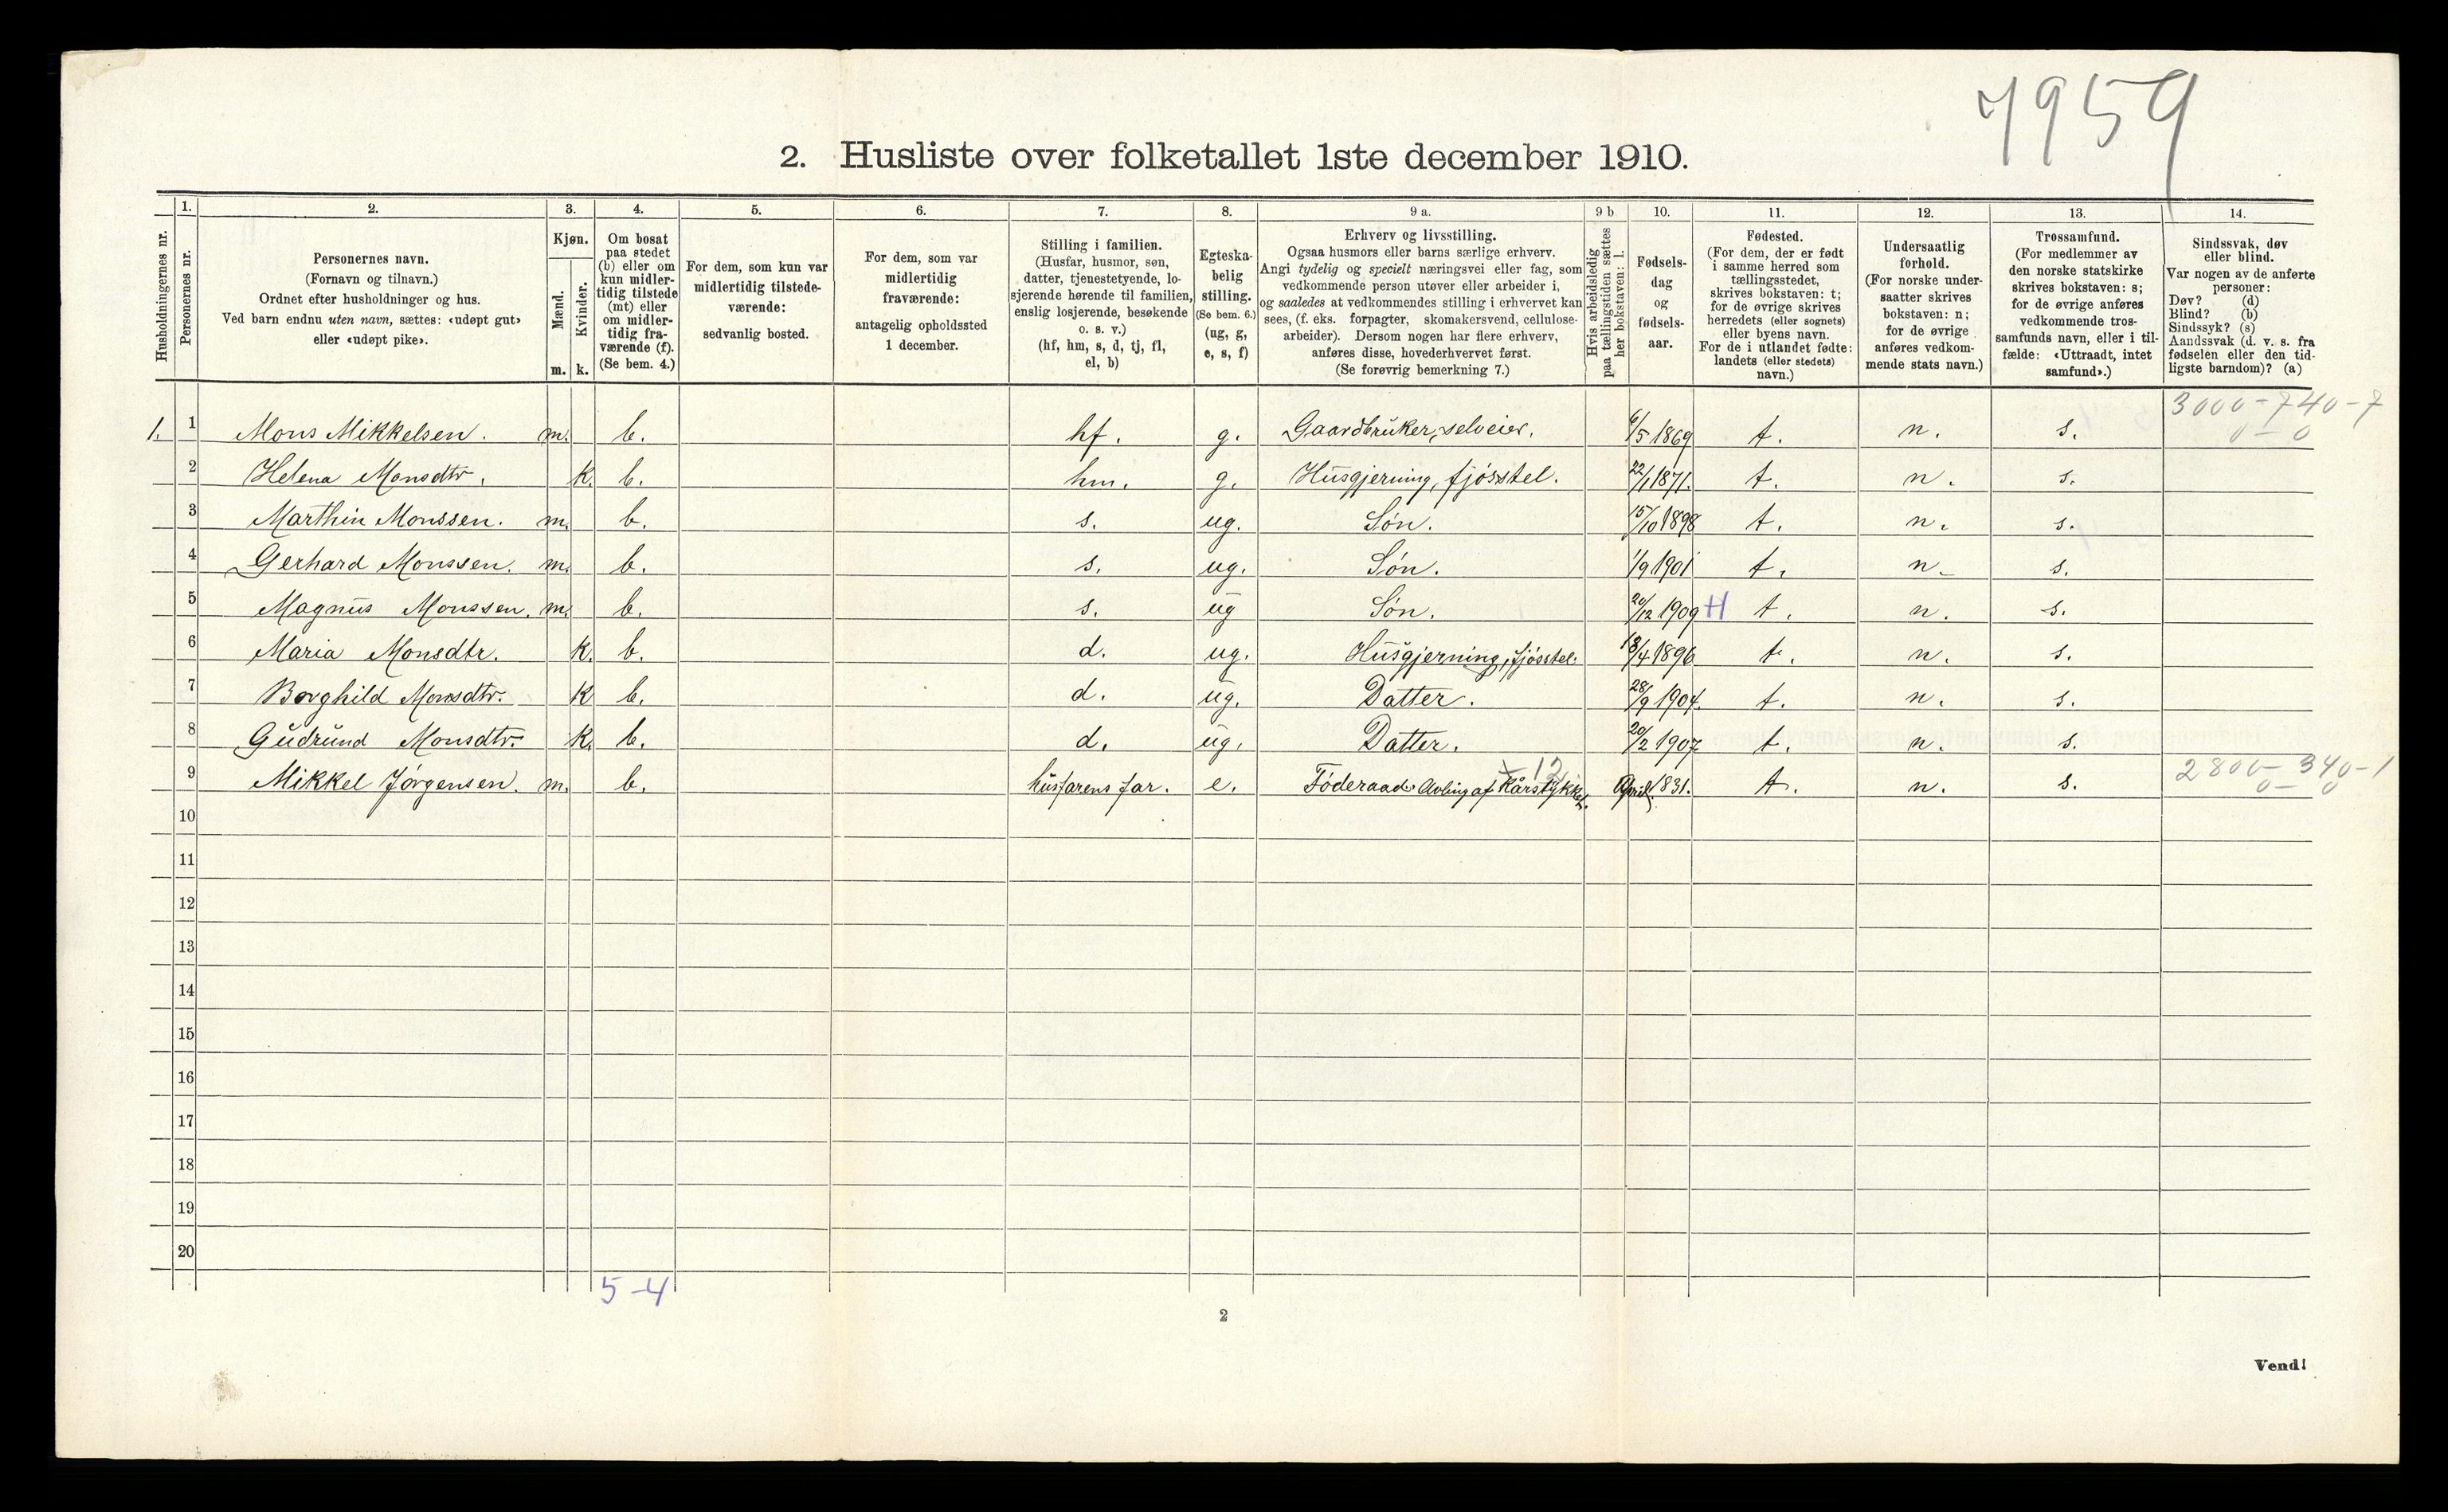 7959
2. Husliste over folketallet 1ste december 1910.
Husholdningernes nr.
1.
Personernes nr.
2.
Personernes navn.
(Fornavn og tilnavn.)
Ordnet efter husholdninger og hus.
Ved barn endnu uten navn, sættes: «udøpt gut»
eller «udøpt pike».
3.
Kjøn.
Mænd.
Kvinder.
m. k.
4.
Om bosat
paa stedet
(b) eller om
kun midler-
tidig tilstede
(mt) eller
om midler-
tidig fra-
værende (f).
(Se bem. 4.)
5.
For dem, som kun var
midlertidig tilstede-
værende:
sedvanlig bosted.
6.
For dem, som var
midlertidig
fraværende:
antagelig opholdssted
1 december.
7.
Stilling i familien.
(Husfar, husmor, søn,
datter, tjenestetyende, lo-
sjerende hørende til familien,
enslig losjerende, besøkende
o. s. v.)
(hf, hm, s, d, tj, fl,
el, b)
8.
Egteska-
belig
stilling.
(Se bem. 6.)
(ug, g,
e, s, f)
9 a.
Erhverv og livsstilling.
Ogsaa husmors eller barns særlige erhverv.
Angi tydelig og specielt næringsvei eller fag, som
vedkommende person utøver eller arbeider i,
og saaledes at vedkommendes stilling i erhvervet kan
sees, (f. eks. forpagter, skomakersvend, cellulose-
arbeider). Dersom nogen har flere erhverv,
anføres disse, hovederhvervet først.
(Se forøvrig bemerkning 7.)
9 b
Hvis arbeidsledig
paa tællingstiden sættes
her bokstaven: l.
10.
Fødsels-
dag
og
fødsels-
aar.
11.
Fødested.
(For dem, der er født
i samme herred som
tællingsstedet,
skrives bokstaven: t;
for de øvrige skrives
herredets (eller sognets)
eller byens navn.
For de i utlandet fødte:
landets (eller stedets)
navn.)
12.
Undersaatlig
forhold.
(For norske under-
saatter skrives
bokstaven: n;
for de øvrige
anføres vedkom-
mende stats navn.)
13.
Trossamfund.
(For medlemmer av
den norske statskirke
skrives bokstaven: s;
for de øvrige anføres
vedkommende tros-
samfunds navn, eller i til-
fælde: «Uttraadt, intet
samfund».)
14.
Sindssvak, døv
eller blind.
Var nogen av de anførte
personer:
Døv? (d)
Blind? (b)
Sindssyk? (s)
Aandssvak (d. v. s. fra
fødselen eller den tid-
ligste barndom)? (a)
3000-740-7
0-0
1. 1 Mons Mikkelsen. m. b. hf. g. Gaardbruker, selveier. 6/5 1869 t. n. s.
2 Helena Monsdtr. k. b. hm. g. Husgjerning, fjøsstel. 22/1 1871. t. n. s.
3 Marthin Monssen. m. b. s. ug. Søn. 15/10 1898 t. n. s.
4 Gerhard Monssen. m. b. s. ug. Søn. 1/9 1901 t. n. s.
5 Magnus Monssen. m. b. s. ug Søn. 20/12 1909 H t. n. s.
6 Maria Monsdtr. k. b. d. ug. Husgjerning, fjøsstel. 18/4 1896 t. n. s.
7 Borghild Monsdtr. k b. d. ug. Datter. 28/9 1904. t. n. s.
8 Gudrund Monsdtr. k. b. d. ug. Datter. 20/2 1907 t. n. s.
9 Mikkel Jørgensen. m. b. husfarens far. e. Føderaad. Avling af Kårstykket. April 1831. t. n. s.
12
2800-340-1
0-0
10
11
12
13
14
15
16
17
18
19
20
5-4
2
Vend!